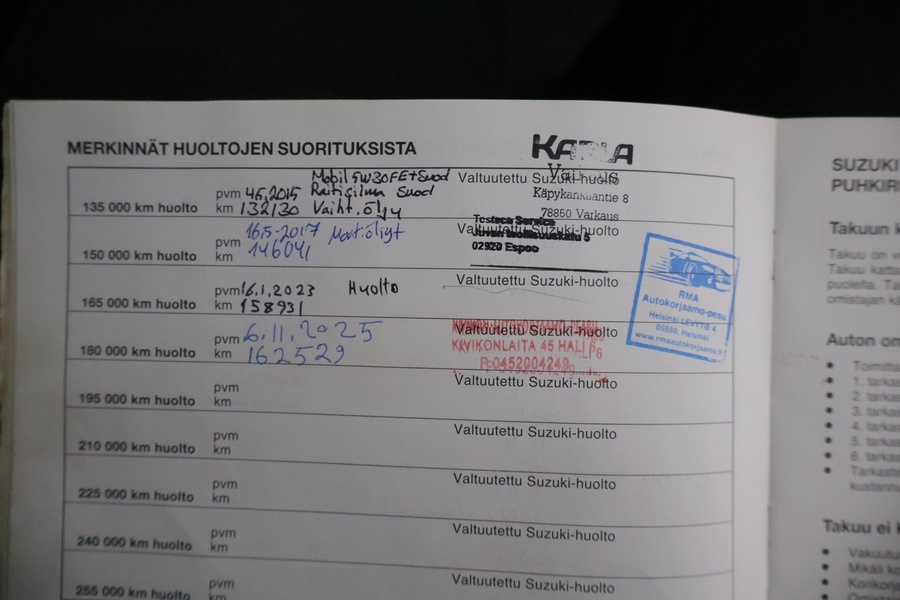 MERKINNÄT HUOLTOJEN SUORITUKSISTA
KARLA
Käpykankaantie 8
78850 Varkaus
135 000 km huolto
pvm 4.5.2015
km 132130
Mobil 5W30FE+Suod
Raitisilma Suod
Vaiht. öljy
Valtuutettu Suzuki-huolto
150 000 km huolto
pvm 16.5-2017
km 146041
Moottoriöljyt
Valtuutettu Suzuki-huolto
Testaca Service
02920 Espoo
165 000 km huolto
pvm 16.1.2023
km 158931
Huolto
Valtuutettu Suzuki-huolto
RMA
Autokorjaamo-pesu
Helsinki LEVYTIE 4,
00880, Helsinki
www.rmaautokorjaamo.fi
180 000 km huolto
pvm 6.11.2025
km 162529
Valtuutettu Suzuki-huolto
KIVIKONLAITA 45 HALI
P:0452004249
195 000 km huolto
pvm
km
Valtuutettu Suzuki-huolto
210 000 km huolto
pvm
km
Valtuutettu Suzuki-huolto
225 000 km huolto
pvm
km
Valtuutettu Suzuki-huolto
240 000 km huolto
pvm
km
Valtuutettu Suzuki-huolto
255 000 km huolto
pvm
km
Valtuutettu Suzuki-huolto
SUZUKI
PUHKI
Takuun
Takuu on
Takuu katta
puolelta.
omistajan
Auton om
Toimitta
1. tarkas
2. tarkas
3. tarkas
4. tarkas
5. tarkas
6. tarkas
Tarkaste
kustann
Takuu ei
Vakuutu
Mikäli
Korikorja
Omistaj